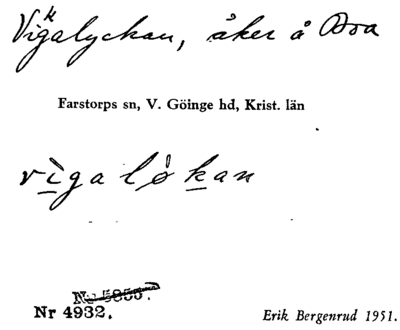 Vigalyckan, åker å Boa
k
Farstorps sn, V. Göinge hd, Krist. län
vìgaløkan
No 5855.
Nr 4932.
Erik Bergenrud 1951.